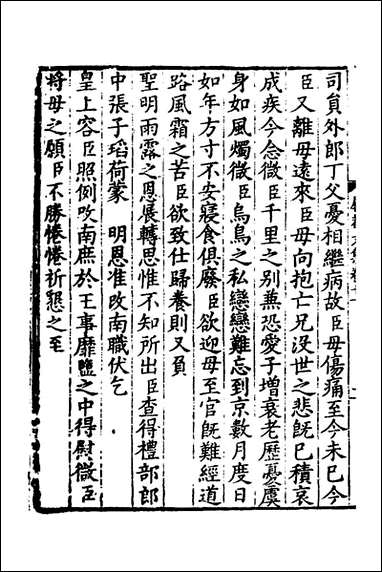 司員外郎丁父憂相繼病故臣母傷痛至今未已今
臣又離母遠來臣母向抱亡兄沒世之悲旣已積哀
成疾今念微臣千里之別兼恐愛子增衰老歷憂虞
身如風燭微臣烏鳥之私戀戀難忘到京數月度日
如年方寸不安寢食俱廢臣欲迎母至官旣難經道
路風霜之苦臣欲致仕歸養則又負
聖明雨露之恩展轉思惟不知所出臣查得禮部郎
中張子瑫荷蒙　明恩准改南職伏乞
皇上容臣照例改南庶於王事靡盬之中得慰微臣
將母之願臣不勝惓惓祈懇之至